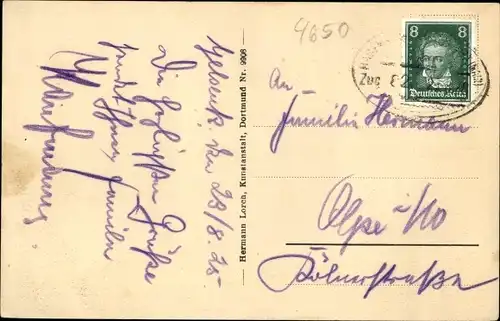 4650
8 8
Deutsches Reich
Zug
An
Familie Hermann
Olpe
Kölnerstraße
den 28/8. 25.
Die herzlichsten Grüße
sendet Ihnen Familie
Hermann Lorch, Kunstanstalt, Dortmund Nr. 9908